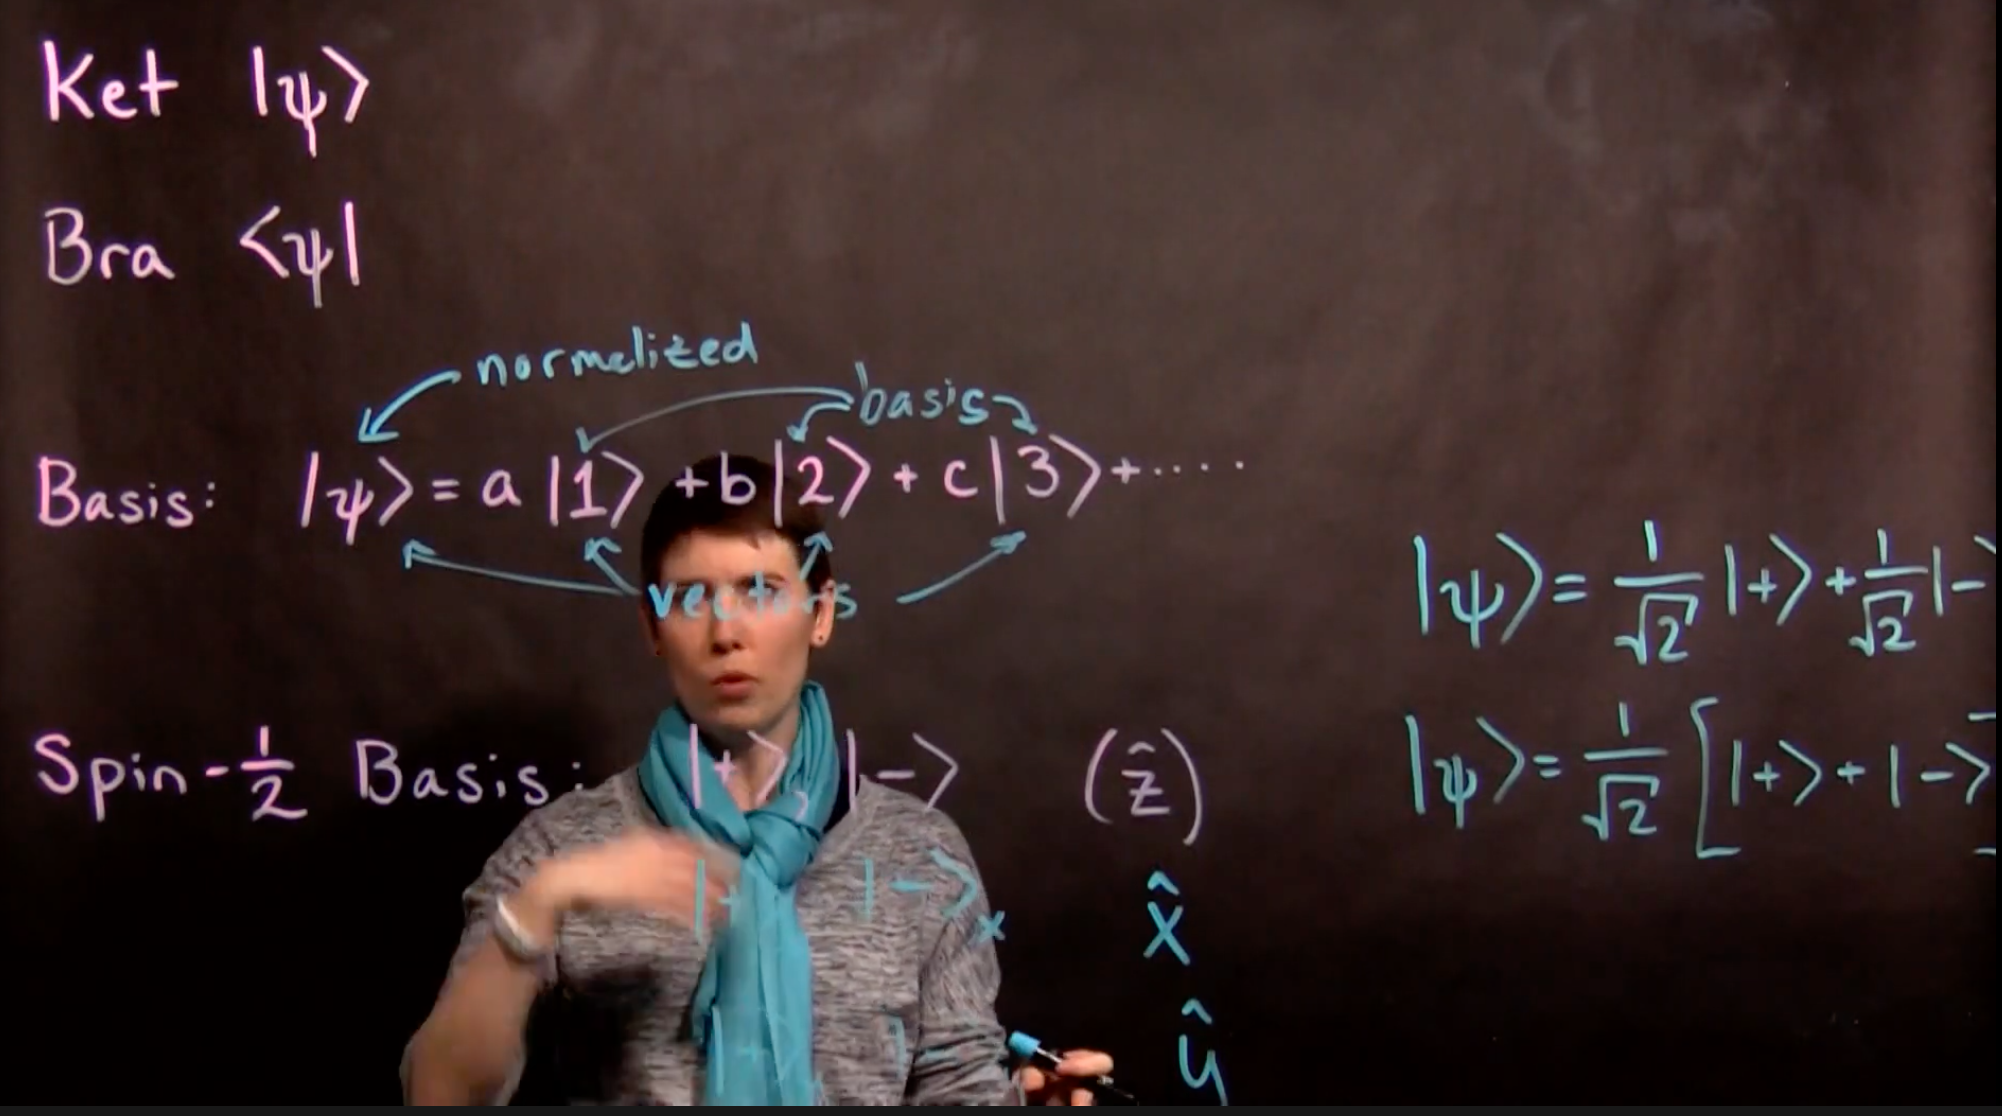 Ket |ψ⟩
Bra <ψ|
normelized
basis
Basis: |ψ⟩ = a |1⟩ + b |2⟩ + c |3⟩ + ....
vectors
|ψ⟩ = 1/√2 |+⟩ + 1/√2 |-⟩
Spin-1/2 Basis: |+⟩, |-⟩ (ẑ)
|ψ⟩ = 1/√2 [|+⟩ + |-⟩
|-⟩ₓ x̂
ŷ